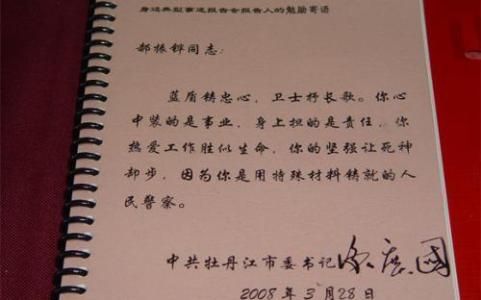 身边典型事迹报告会报告人的勉励寄语
郝振铎同志：
蓝盾铸忠心，卫士抒长歌。你心
中装的是事业，身上担的是责任，你
热爱工作胜似生命，你的坚强让死神
却步，因为你是用特殊材料铸就的人
民警察。
中共牡丹江市委书记
2008年3月28日